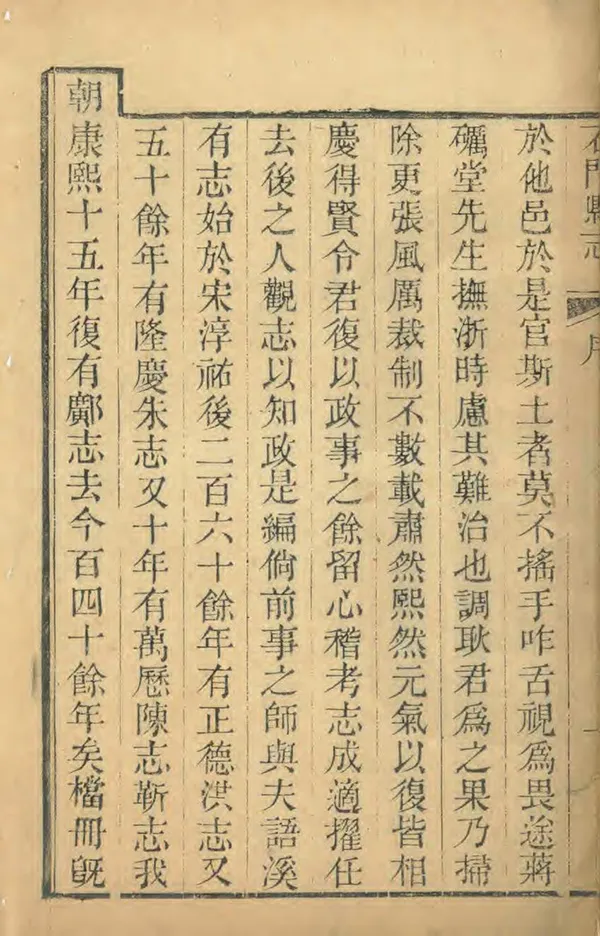 石門縣志 序
於他邑於是官斯土者莫不搖手咋舌視爲畏途蔣
礪堂先生撫浙時慮其難治也調耿君爲之果乃掃
除更張風厲裁制不數載肅然熙然元氣以復皆相
慶得賢令君復以政事之餘留心稽考志成適擢任
去後之人觀志以知政是編倘前事之師與夫語溪
有志始於宋淳祐後二百六十餘年有正德洪志又
五十餘年有隆慶朱志又十年有萬歷陳志靳志我
朝康熙十五年復有鄺志去今百四十餘年矣檔冊旣